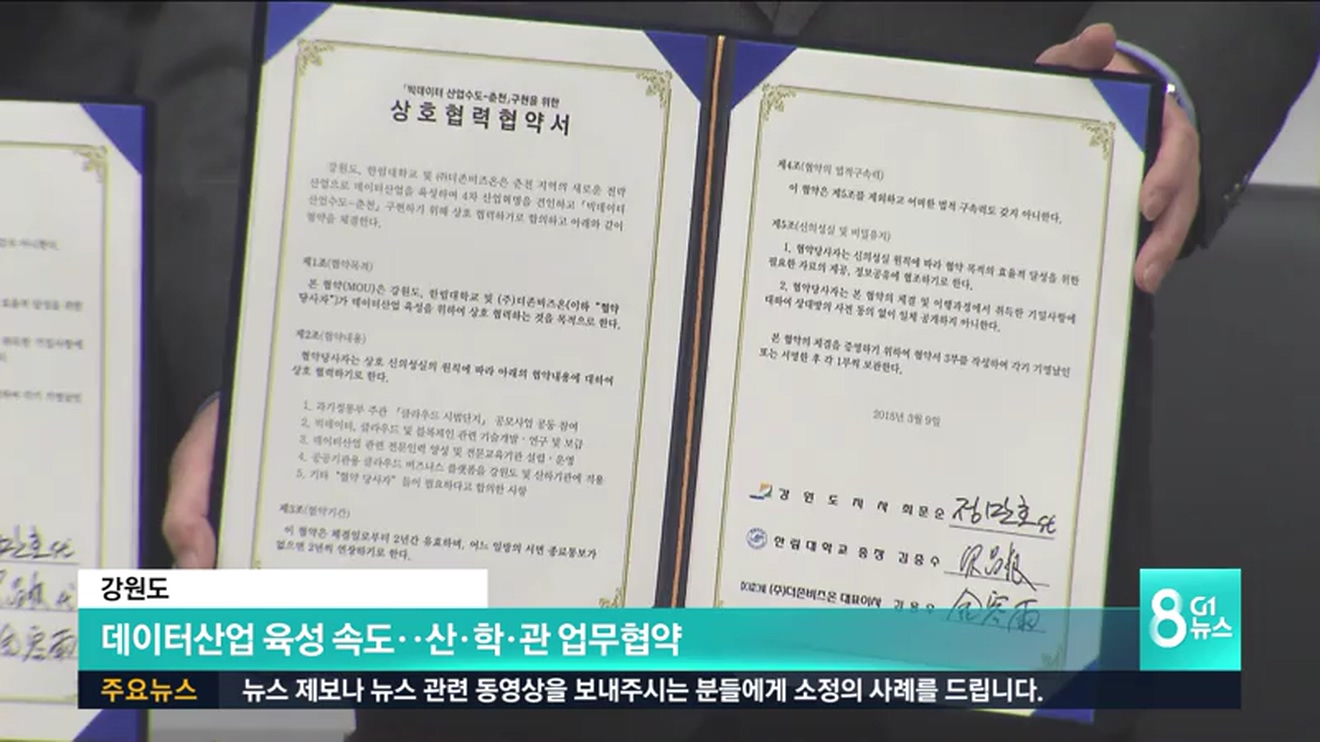 「빅데이터 산업수도-춘천」구현을 위한
상호협력협약서
강원도, 한림대학교 및 ㈜더존비즈온은 춘천 지역의 새로운 전략
산업으로 데이터산업을 육성하여 4차 산업혁명을 견인하고 「빅데이터
산업수도-춘천」 구현하기 위해 상호 협력하기로 합의하고 아래와 같이
협약을 체결한다.
제1조(협약목적)
본 협약(MOU)은 강원도, 한림대학교 및 (주)더존비즈온(이하 "협약
당사자")가 데이터산업 육성을 위하여 상호 협력하는 것을 목적으로 한다.
제2조(협약내용)
협약당사자는 상호 신의성실의 원칙에 따라 아래의 협약내용에 대하여
상호 협력하기로 한다.
1. 과기정통부 주관 「클라우드 시범단지」 공모사업 공동 참여
2. 빅데이터, 클라우드 및 블록체인 관련 기술개발·연구 및 보급
3. 데이터산업 관련 전문인력 양성 및 전문교육기관 설립·운영
4. 공공기관용 클라우드 비즈니스 플랫폼을 강원도 및 산하기관에 적용
5. 기타 "협약 당사자" 등이 필요하다고 합의한 사항
제3조(협약기간)
이 협약은 체결일로부터 2년간 유효하며, 어느 일방의 서면 종료통보가
없으면 2년씩 연장하기로 한다.
제4조(협약의 법적구속력)
이 협약은 제5조를 제외하고 어떠한 법적 구속력도 갖지 아니한다.
제5조(신의성실 및 비밀유지)
1. 협약당사자는 신의성실 원칙에 따라 협약 목적의 효율적 달성을 위한
필요한 자료의 제공, 정보공유에 협조하기로 한다.
2. 협약당사자는 본 협약의 체결 및 이행과정에서 취득한 기밀사항에
대하여 상대방의 사전 동의 없이 일체 공개하지 아니한다.
본 협약의 체결을 증명하기 위하여 협약서 3부를 작성하여 각기 기명날인
또는 서명한 후 각 1부씩 보관한다.
2018년 3월 9일
강원도지사 최문순 정만호
한림대학교 총장 김중수
(주)더존비즈온 대표이사 김용우
강원도
데이터산업 육성 속도··산·학·관 업무협약
8 G1 뉴스
주요뉴스 뉴스 제보나 뉴스 관련 동영상을 보내주시는 분들에게 소정의 사례를 드립니다.